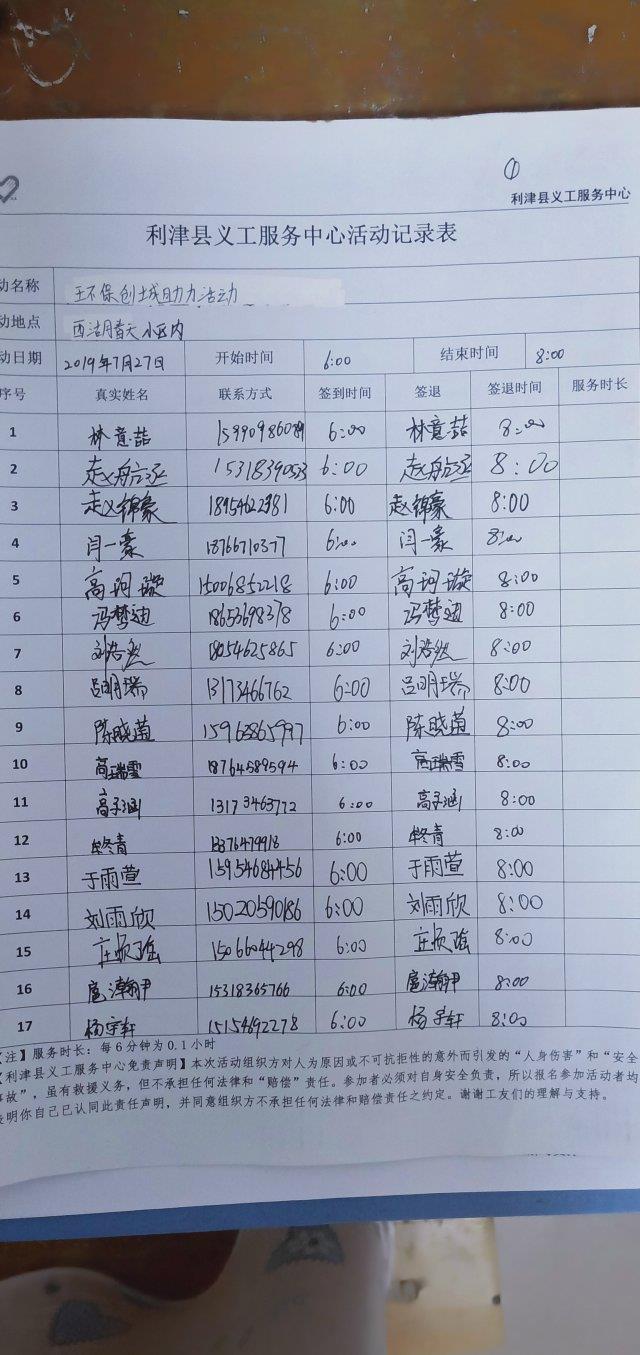 ①
利津县义工服务中心
利津县义工服务中心活动记录表
动名称 环保创城助力活动
动地点 西湖春天小区内
动日期 2019年7月27日 开始时间 6:00 结束时间 8:00
序号 真实姓名 联系方式 签到时间 签退 签退时间 服务时长
1 林意喆 6:00 林意喆 8:00
2 15318390523 6:00 8:00
3 赵锦豪 18954622981 6:00 赵锦豪 8:00
4 闫一豪 18766710377 6:00 闫一豪 8:00
5 高珂璇 15006852218 6:00 高珂璇 8:00
6 冯梦迪 18653698378 6:00 冯梦迪 8:00
7 刘浩然 18054625865 6:00 刘浩然 8:00
8 吕明瑞 13173466762 6:00 吕明瑞 8:00
9 陈晓菡 15963865997 6:00 陈晓菡 8:00
10 高瑞雪 18764589594 6:00 高瑞雪 8:00
11 高子涵 13173463772 6:00 高子涵 8:00
12 6:00 8:00
13 于雨萱 15954684456 6:00 于雨萱 8:00
14 刘雨欣 15020590186 6:00 刘雨欣 8:00
15 15066044298 6:00 8:00
16 15318365766 6:00 8:00
17 杨宇轩 15154692278 6:00 杨宇轩 8:00
【注】服务时长：每6分钟为0.1小时
【利津县义工服务中心免责声明】本次活动组织方对人为原因或不可抗拒性的意外而引发的“人身伤害”和“安全
事故”，虽有救援义务，但不承担任何法律和“赔偿”责任。参加者必须对自身安全负责，所以报名参加活动者均
表明你自己已认同此责任声明，并同意组织方不承担任何法律和赔偿责任之约定。谢谢工友们的理解与支持。